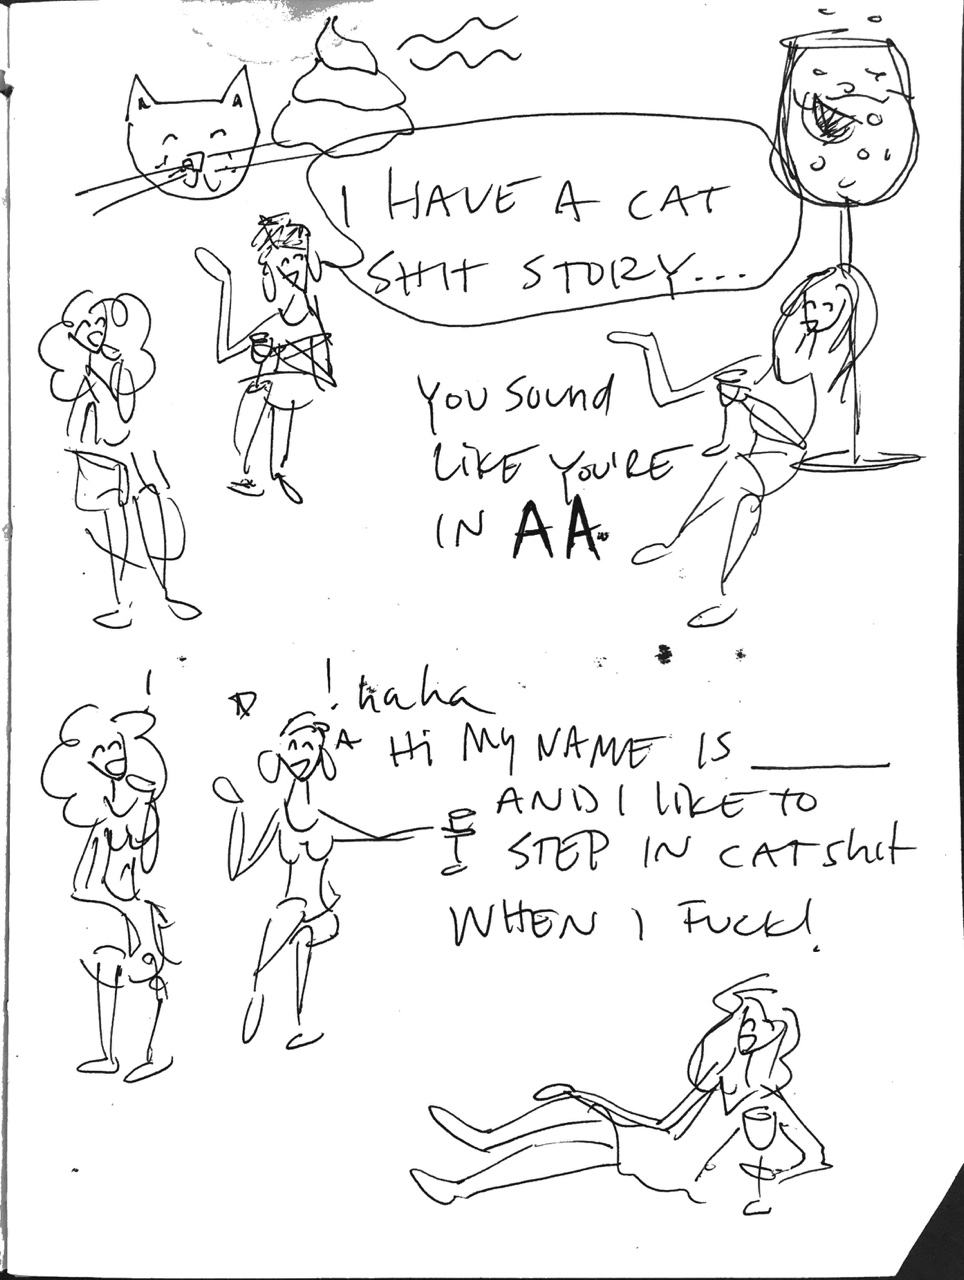 I HAVE A CAT
SHIT STORY...
YOU SOUND
LIKE YOU'RE
IN AA.
! haha
Hi MY NAME IS ________
AND I LIKE TO
STEP IN CAT shit
WHEN I FUCK!